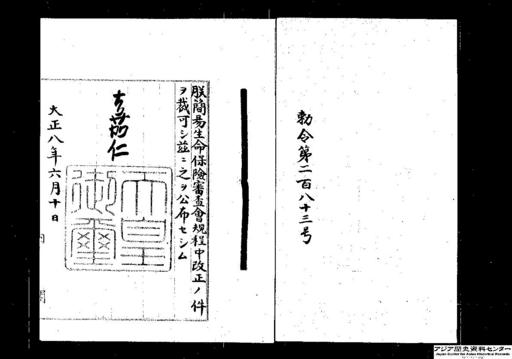 勅令第二百八十三号
朕簡易生命保險審査會規程中改正ノ件
ヲ裁可シ茲ニ之ヲ公布セシム
嘉仁
天皇
御璽
大正八年六月十日
内閣
アジア歴史資料センター
Japan Center for Asian Historical Records